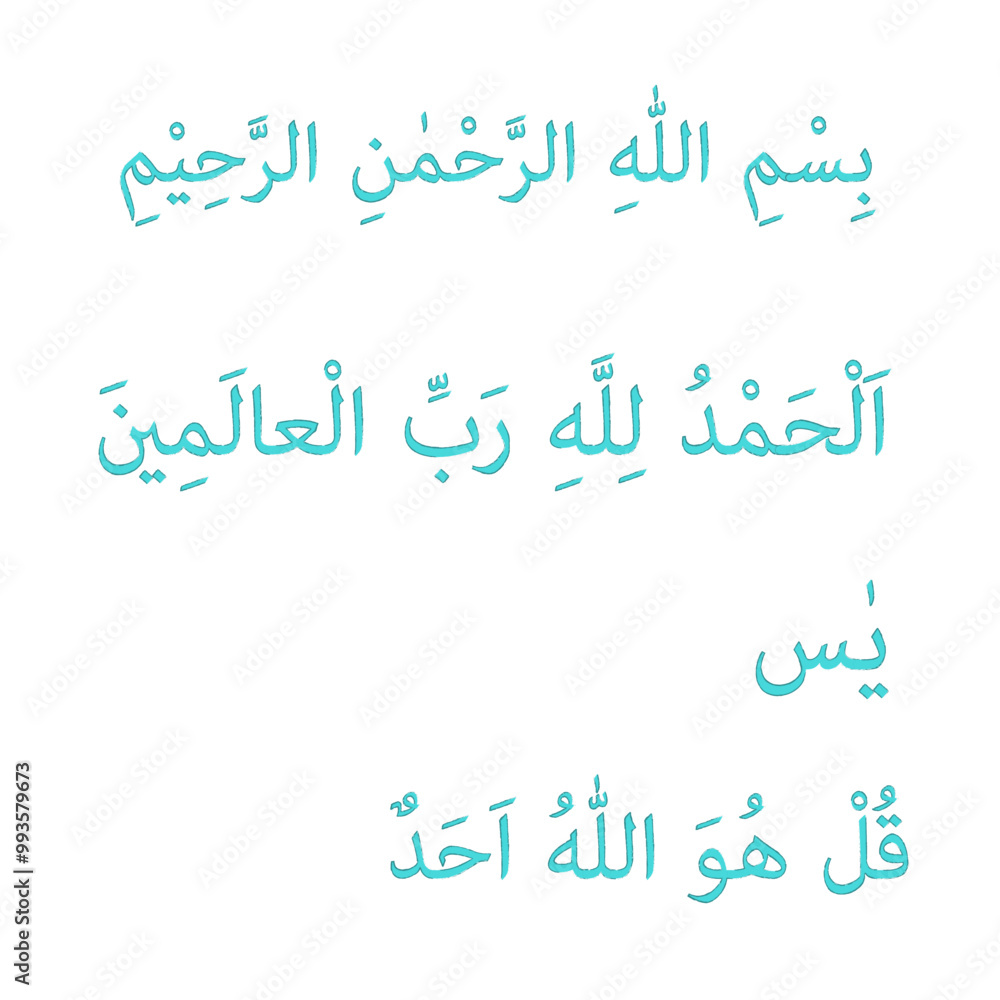 بِسْمِ اللّٰهِ الرَّحْمٰنِ الرَّحِيْمِ
اَلْحَمْدُ لِلَّهِ رَبِّ الْعالَمِينَ
يٰس
قُلْ هُوَ اللّٰهُ اَحَدٌ
Adobe Stock | #993579673